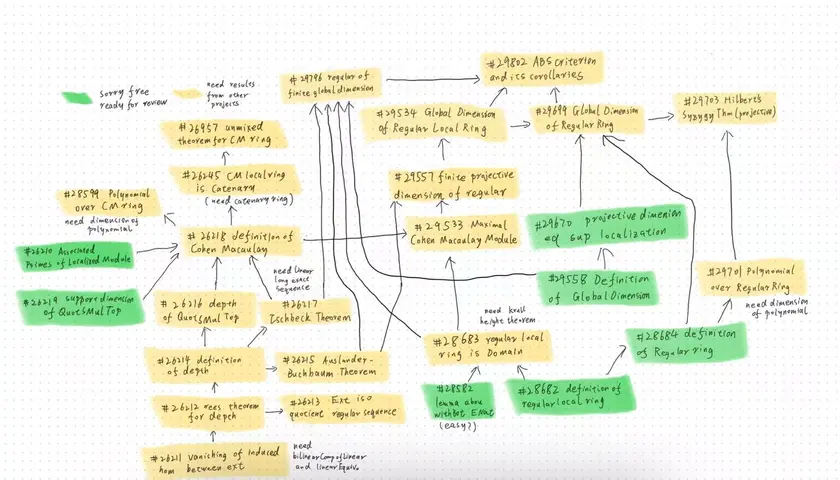 sorry free
ready for review
need results
from other
projects
#29796 regular of
finite global dimension
#29802 ABS criterion
and its corollaries
#29534 Global Dimension
of Regular Local Ring
#29699 Global Dimension
of Regular Ring
#29703 Hilbert's
Syzygy Thm (projective)
#26957 unmixed
theorem for CM ring
#26245 CM local ring
is Catenary
(need catenary ring)
#29557 finite projective
dimension of regular
#28599 Polynomial
over CM ring
need dimension of
polynomial
#26218 definition of
Cohen Macaulay
#29533 Maximal
Cohen Macaulay Module
#29670 projective dimenion
eq sup localization
#26210 Associated
Primes of Localized Module
#26219 support dimension
of QuotSMulTop
need linear
long exact
sequence
#29558 Definition
of Global Dimension
#29701 Polynomial
over Regular Ring
need dimension
of polynomial
#26216 depth of
QuotSMulTop
#26217
Ischbeck Theorem
need krull
height theorem
#28683 regular local
ring is Domain
#28684 definition
of Regular ring
#26214 definition
of depth
#26215 Auslander-
Buchbaum Theorem
#28582
lemma about
withBot ENat
(easy?)
#28682 definition of
regular local ring
#26212 rees theorem
for depth
#26213 Ext iso
quotient regular sequence
#26211 vanishing of induced
hom between ext
need
bilinearCompOfLinear
and linearEquiv.